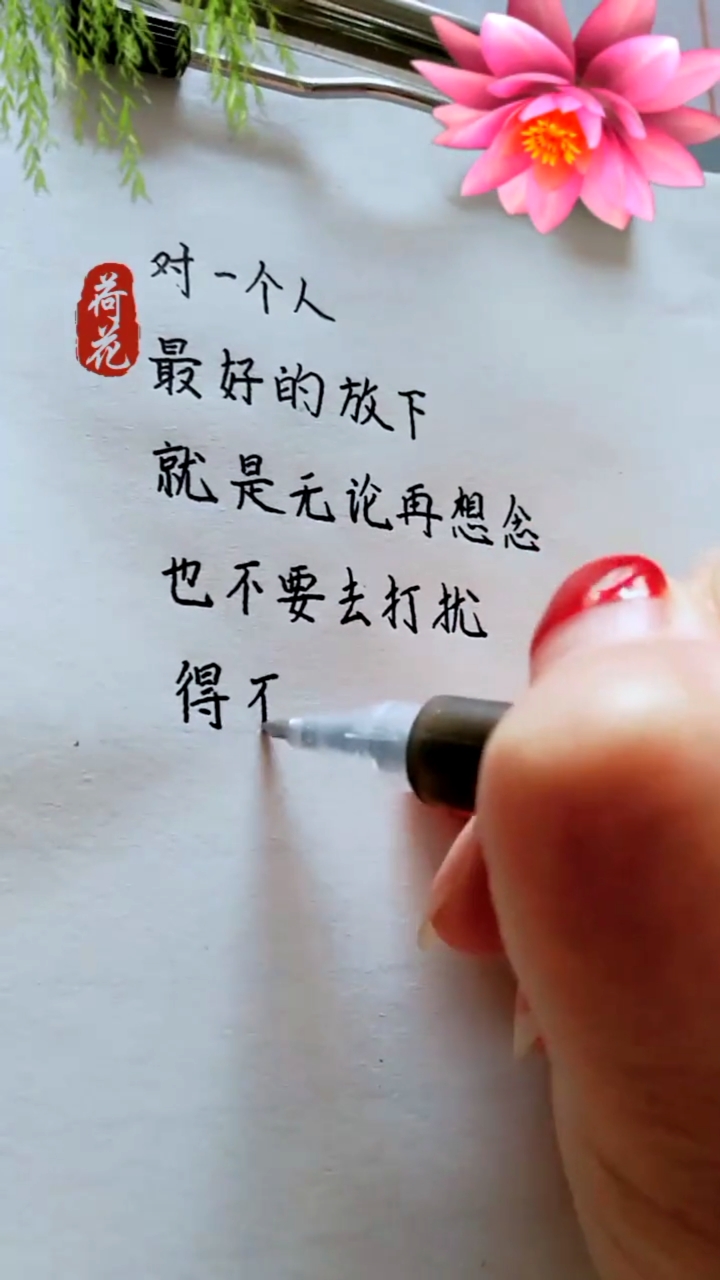 荷花
对一个人
最好的放下
就是无论再想念
也不要去打扰
得不